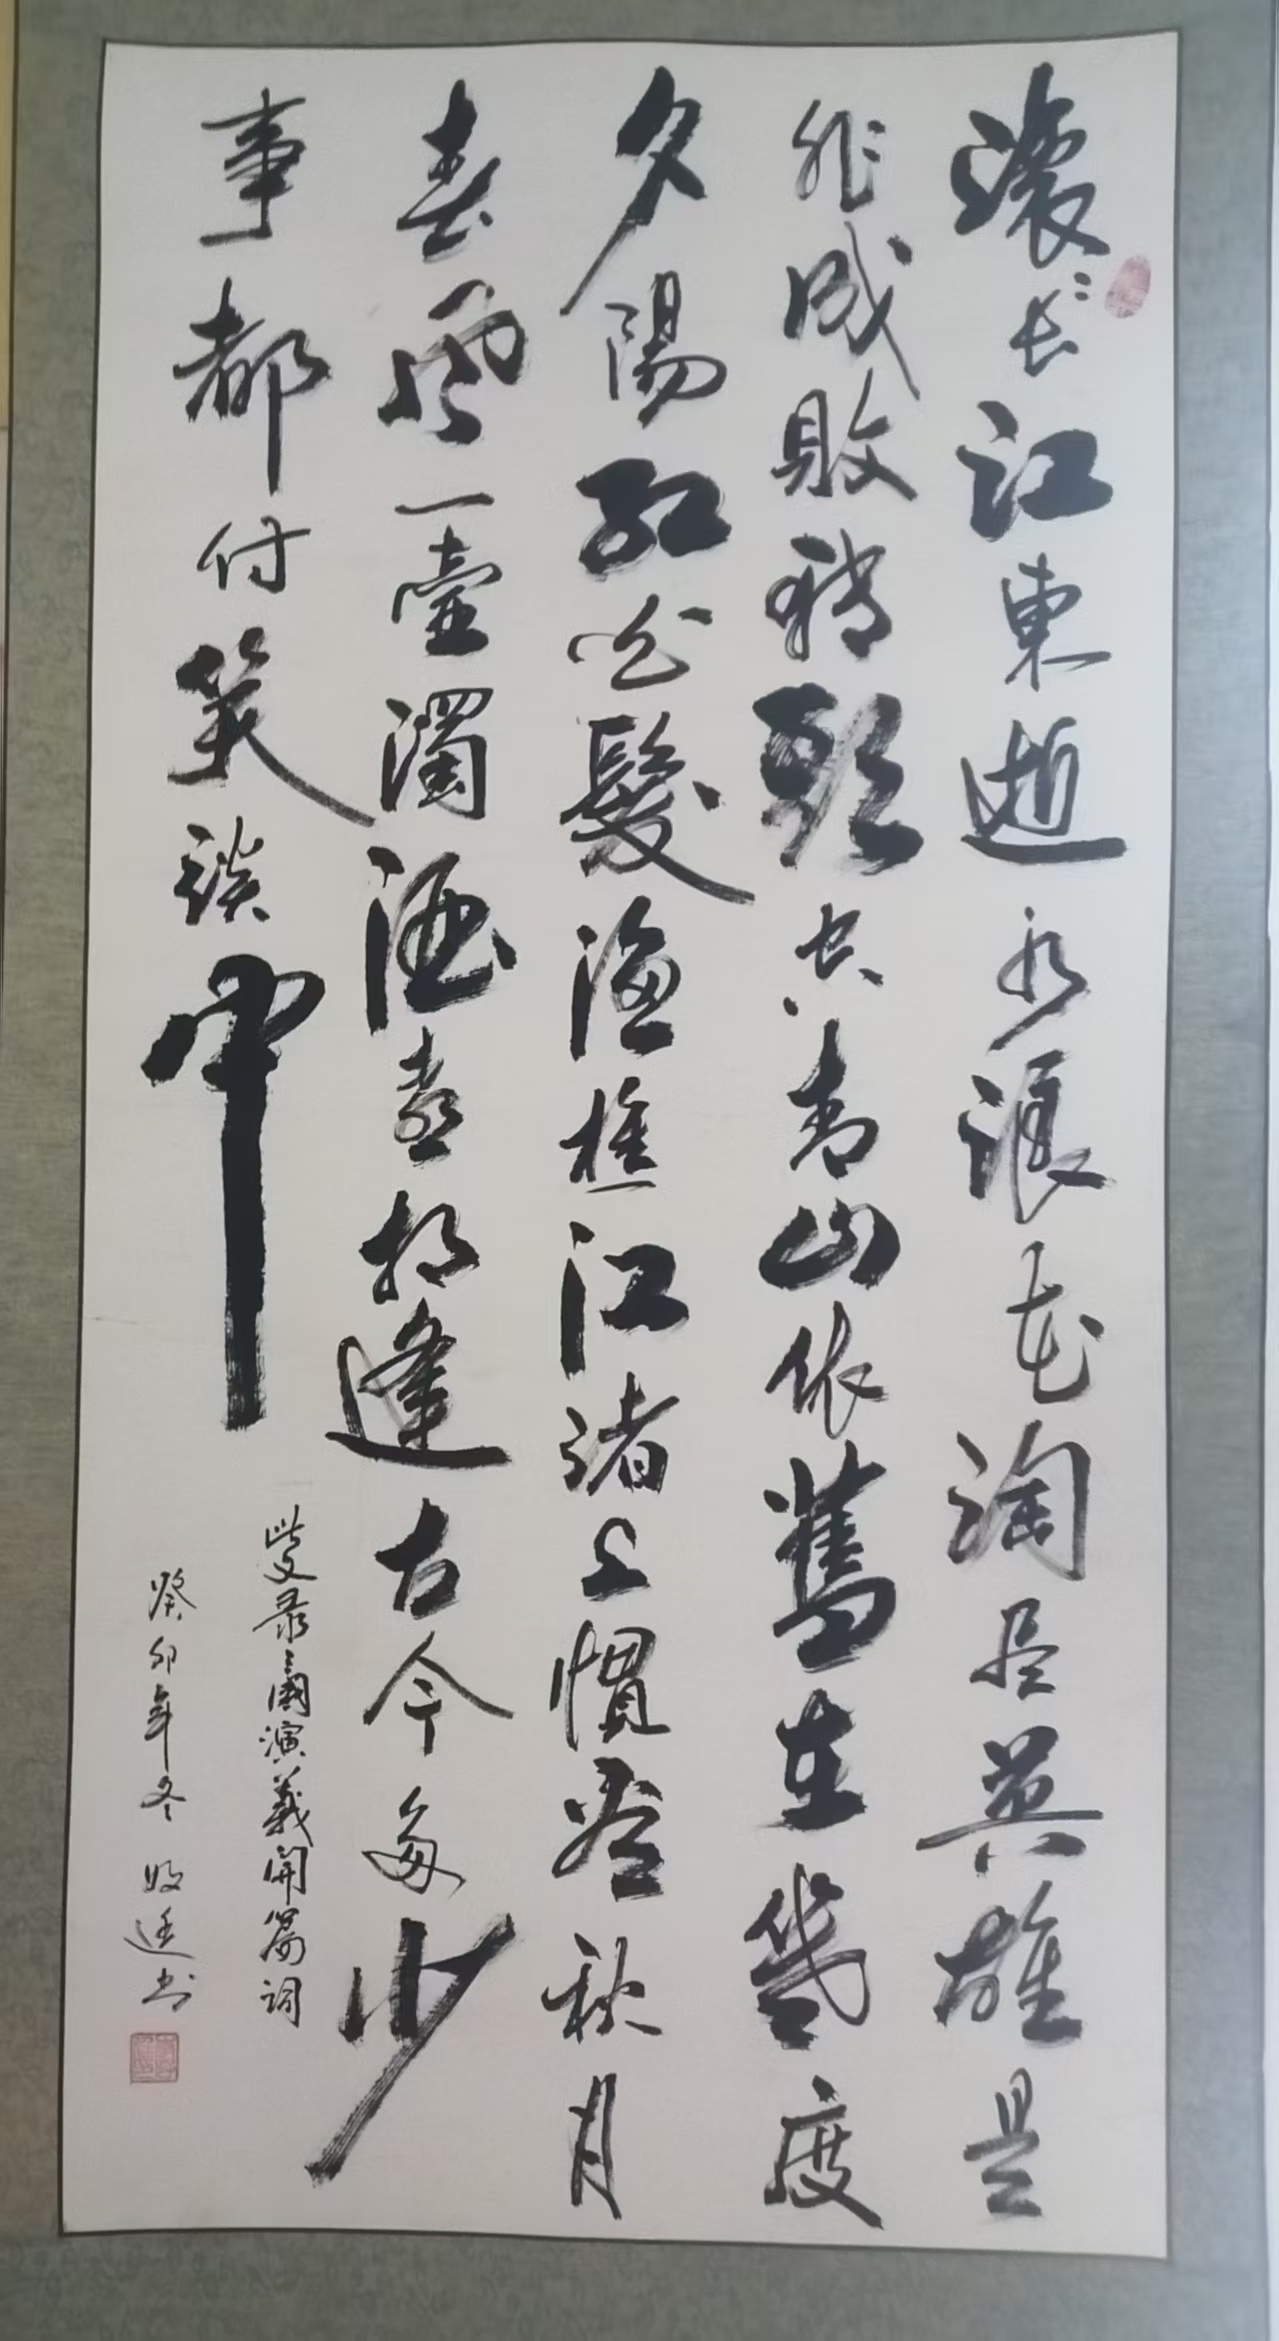 滚滚长江東逝水浪花淘尽英雄是
非成敗轉頭空青山依舊在幾度
夕陽紅白髮漁樵江渚上慣看秋月
春風一壺濁酒喜相逢古今多少
事都付笑談中
录三國演義開篇词
癸卯年冬 廷书